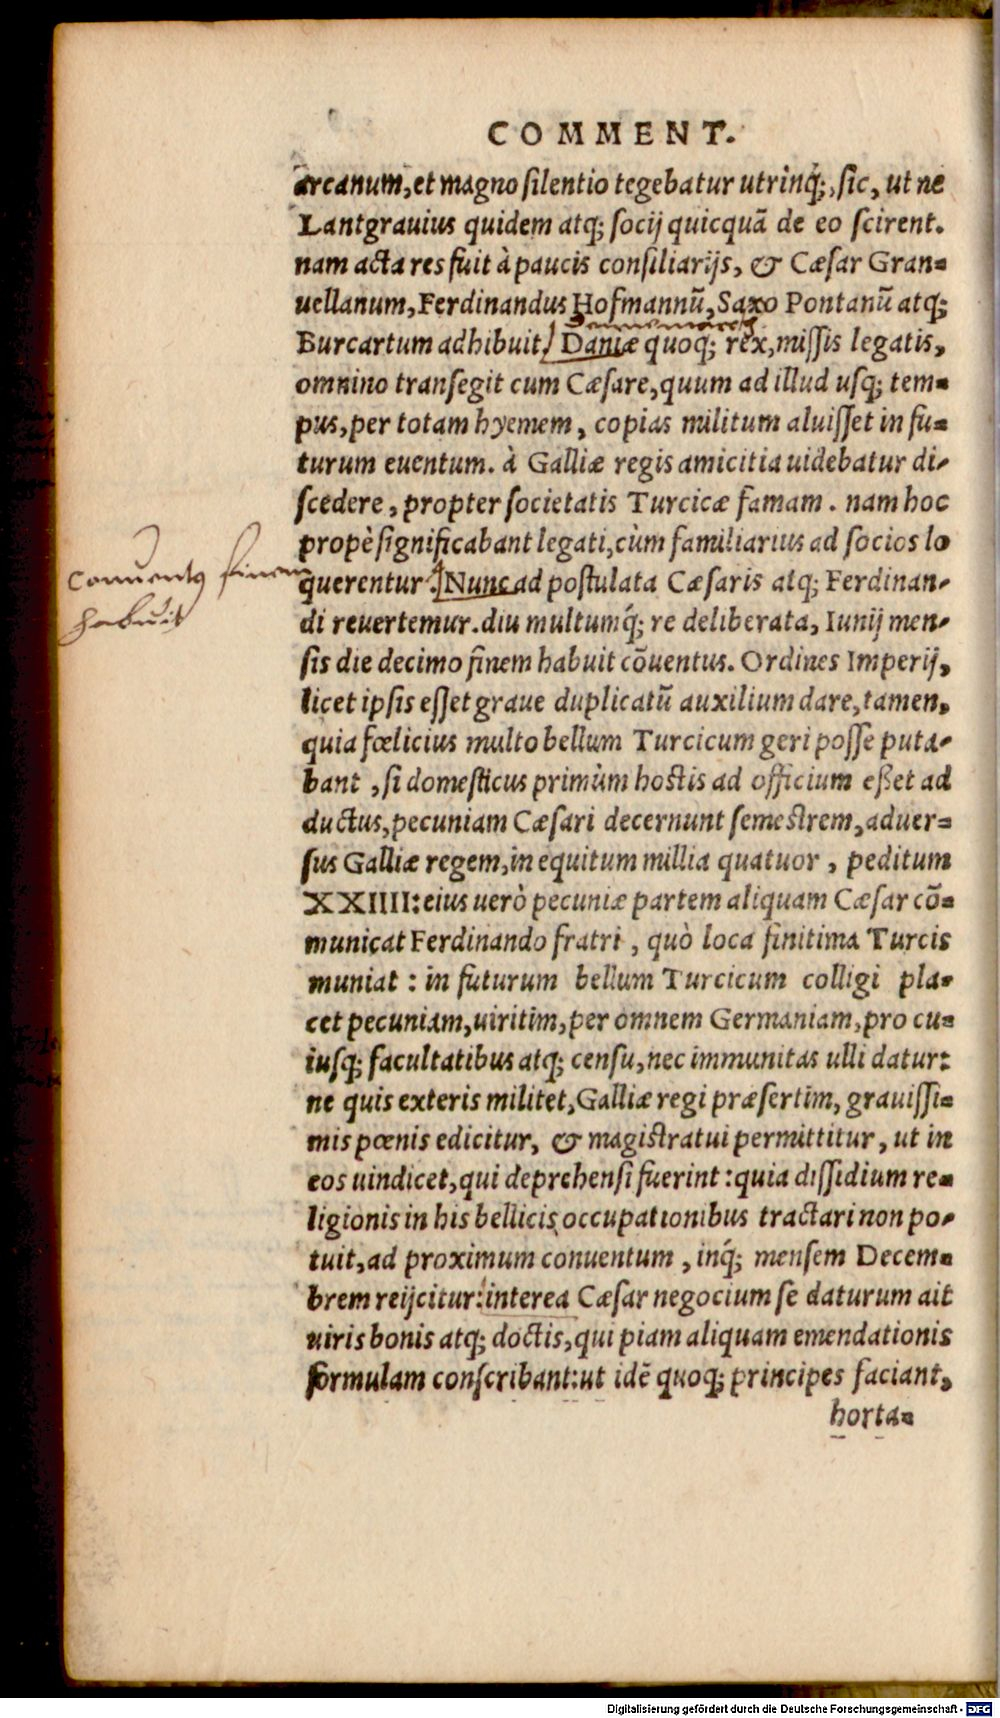 COMMENT.
arcanum, et magno silentio tegebatur utrinq́;, sic, ut ne
Lantgrauius quidem atq; socij quicquã de eo scirent.
nam acta res fuit à paucis consiliarijs, & Cæsar Gran-
uellanum, Ferdinandus Hofmannũ, Saxo Pontanũ atq;
Burcartum adhibuit. Daniæ quoq; rex, missis legatis,
omnino transegit cum Cæsare, quum ad illud usq; tem-
pus, per totam hyemem, copias militum aluisset in fu-
turum euentum. à Galliæ regis amicitia uidebatur di-
scedere, propter societatis Turcicæ famam. nam hoc
propè significabant legati, cùm familiarius ad socios lo
conuentus finem
habuit
querentur. Nunc ad postulata Cæsaris atq; Ferdinan-
di reuertemur. diu multumq́; re deliberata, Iunij men-
sis die decimo finem habuit cõuentus. Ordines Imperij,
licet ipsis esset graue duplicatũ auxilium dare, tamen,
quia fœlicius multo bellum Turcicum geri posse puta-
bant, si domesticus primùm hostis ad officium eßet ad
ductus, pecuniam Cæsari decernunt semestrem, aduer-
sus Galliæ regem, in equitum millia quatuor, peditum
XXIIII: eius uerò pecuniæ partem aliquam Cæsar cõ-
municat Ferdinando fratri, quò loca finitima Turcis
muniat: in futurum bellum Turcicum colligi pla-
cet pecuniam, uiritim, per omnem Germaniam, pro cu-
iusq; facultatibus atq; censu, nec immunitas ulli datur:
ne quis exteris militet, Galliæ regi præsertim, grauissi-
mis pœnis edicitur, & magistratui permittitur, ut in
eos uindicet, qui deprehensi fuerint: quia dissidium re-
ligionis in his bellicis occupationibus tractari non po-
tuit, ad proximum conuentum, inq́; mensem Decem-
brem reijcitur: interea Cæsar negocium se daturum ait
uiris bonis atq; doctis, qui piam aliquam emendationis
formulam conscribant: ut idẽ quoq; principes faciant,
horta-
Digitalisierung gefördert durch die Deutsche Forschungsgemeinschaft - DFG